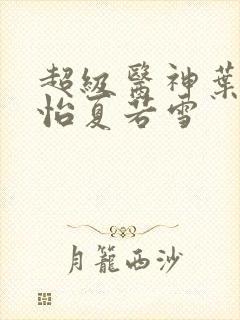 超級醫神葉
怡夏若雪
月籠西沙